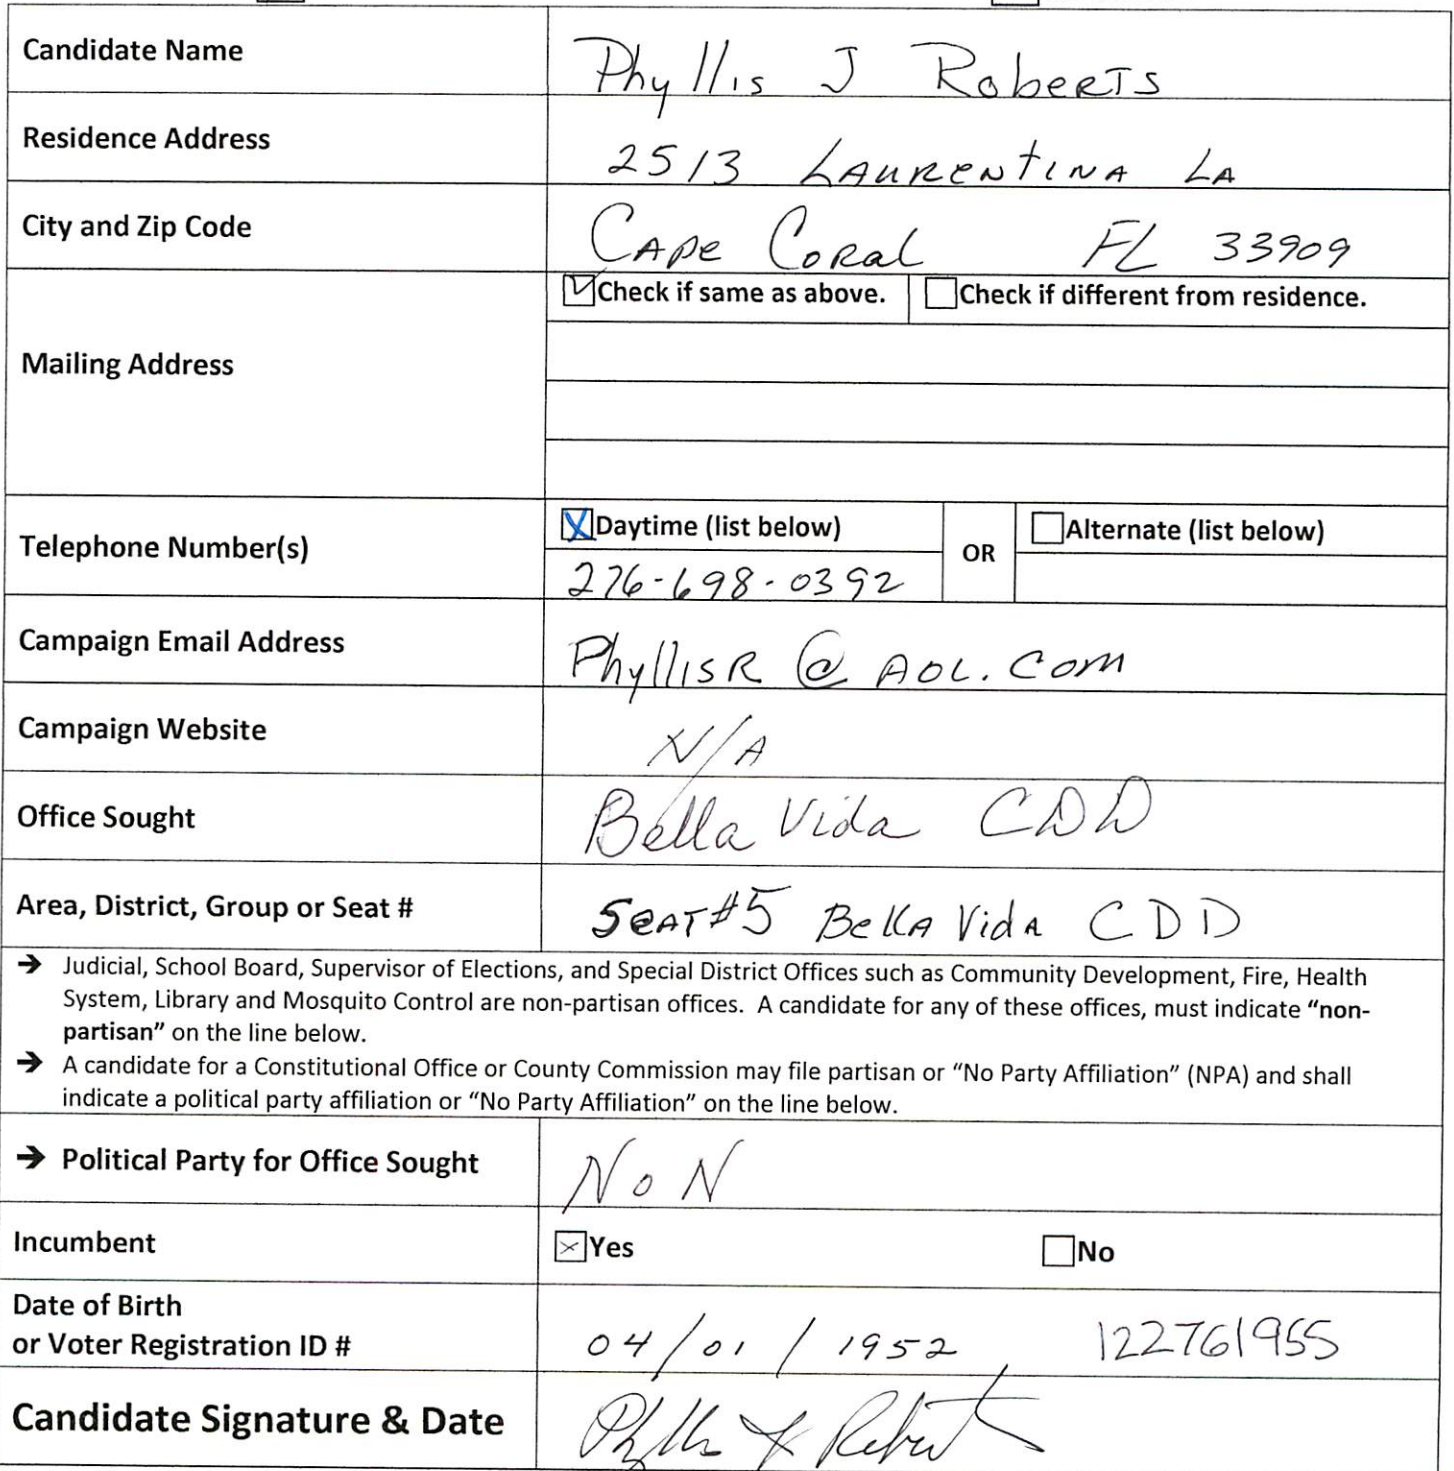 Candidate Name Phyllis J Roberts
Residence Address 2513 Laurentina La
City and Zip Code Cape Coral FL 33909
Check if same as above. Check if different from residence.
Mailing Address
Daytime (list below) Alternate (list below)
Telephone Number(s) OR
276-698-0392
Campaign Email Address PhyllisR @ AOL.com
Campaign Website N/A
Office Sought Bella Vida CDD
Area, District, Group or Seat # Seat #5 Bella Vida CDD
→ Judicial, School Board, Supervisor of Elections, and Special District Offices such as Community Development, Fire, Health
System, Library and Mosquito Control are non-partisan offices. A candidate for any of these offices, must indicate “non-
partisan” on the line below.
→ A candidate for a Constitutional Office or County Commission may file partisan or “No Party Affiliation” (NPA) and shall
indicate a political party affiliation or “No Party Affiliation” on the line below.
→ Political Party for Office Sought NoN
Incumbent Yes No
Date of Birth
or Voter Registration ID # 04/01/1952 122761955
Candidate Signature & Date Phyllis J Roberts